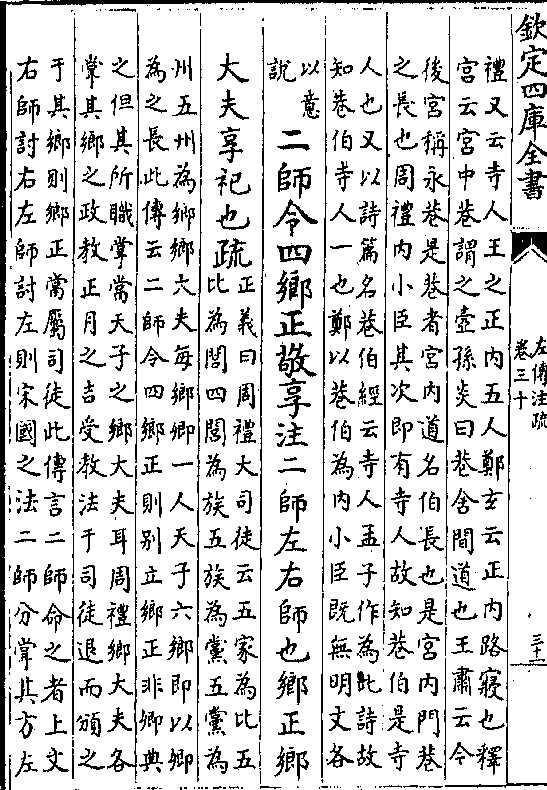 欽定四庫全書
左傳注疏
卷三十
三十一
禮又云寺人王之正内五人鄭玄云正内路寢也釋
宫云宫中巷謂之壼孫炎曰巷舍間道也王肅云今
後宫稱永巷是巷者宫内道名伯長也是宫内門巷
之長也周禮内小臣其次即有寺人故知巷伯是寺
人也又以詩篇名巷伯經云寺人孟子作為此詩故
知巷伯寺人一也鄭以巷伯為内小臣既無明文各
以意
說
二師令四鄉正敬享注二師左右師也鄉正鄉
大夫享祀也疏
正義曰周禮大司徒云五家為比五
比為閭四閭為族五族為黨五黨為
州五州為鄉鄉大夫每鄉卿一人天子六鄉即以卿
為之長此傳云二師令四鄉正則别立鄉正非卿典
之但其所職掌當天子之鄉大夫耳周禮鄉大夫各
掌其鄉之政教正月之吉受教法于司徒退而頒之
于其鄉則鄉正當屬司徒此傳言二師命之者上文
右師討右左師討左則宋國之法二師分掌其方左